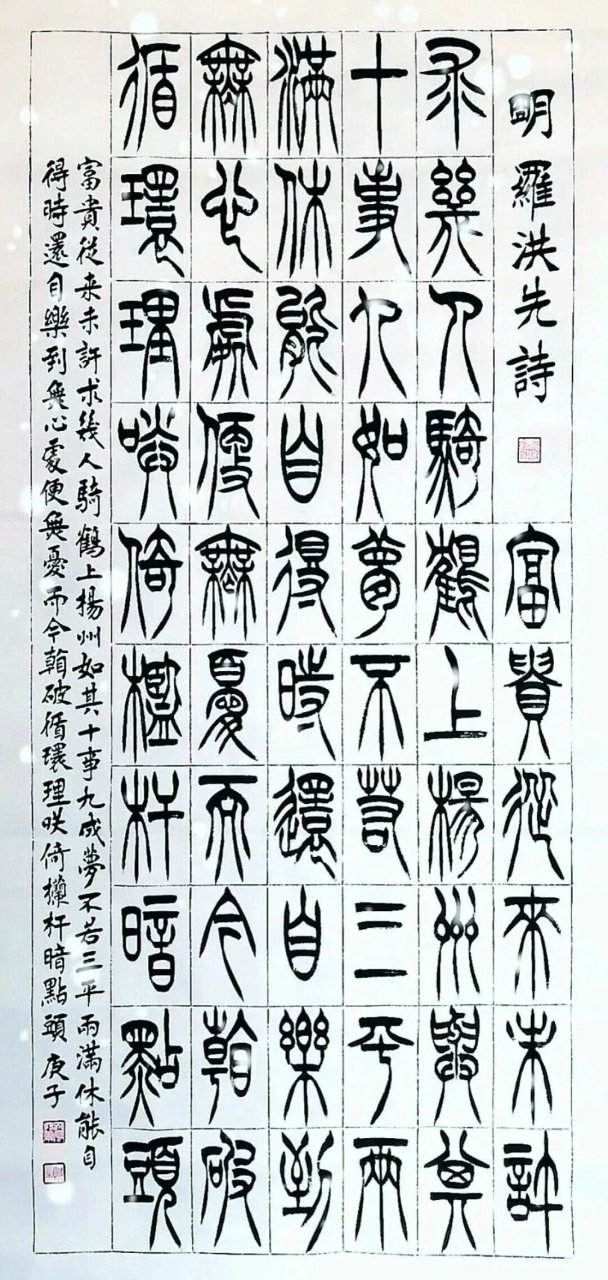 明羅洪先詩
富貴從來未許
求幾人騎鶴上楊州與其
十事九如夢不若三平兩
滿休能自得時還自樂到
無心處便無憂而今翰破
循環理咲倚檻杆暗點頭
富貴從来未許求幾人騎鶴上揚州如其十事九成夢不若三平兩滿休能自
得時還自樂到無心處便無憂而今翰破循環理咲倚欄杆暗點頭庚子